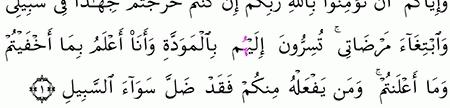 وَإِيَّاكُمْ أَن تُؤْمِنُوا۟ بِٱللَّهِ رَبِّكُمْ إِن كُنتُمْ خَرَجْتُمْ جِهَٰدًا فِى سَبِيلِى
وَٱبْتِغَآءَ مَرْضَاتِى ۚ تُسِرُّونَ إِلَيْهِم بِٱلْمَوَدَّةِ وَأَنَا۠ أَعْلَمُ بِمَآ أَخْفَيْتُمْ
وَمَآ أَعْلَنتُمْ ۚ وَمَن يَفْعَلْهُ مِنكُمْ فَقَدْ ضَلَّ سَوَآءَ ٱلسَّبِيلِ ١